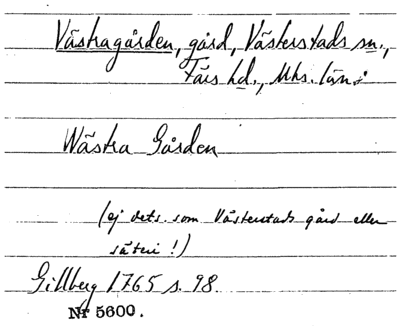 Västragården, gård, Västerstads sn.,
Färs hd., Mhs. län.
Wästra Gården
(ej dets. som Västerstads gård eller
säteri!)
Gillberg 1765 s. 98
Nr 5600.